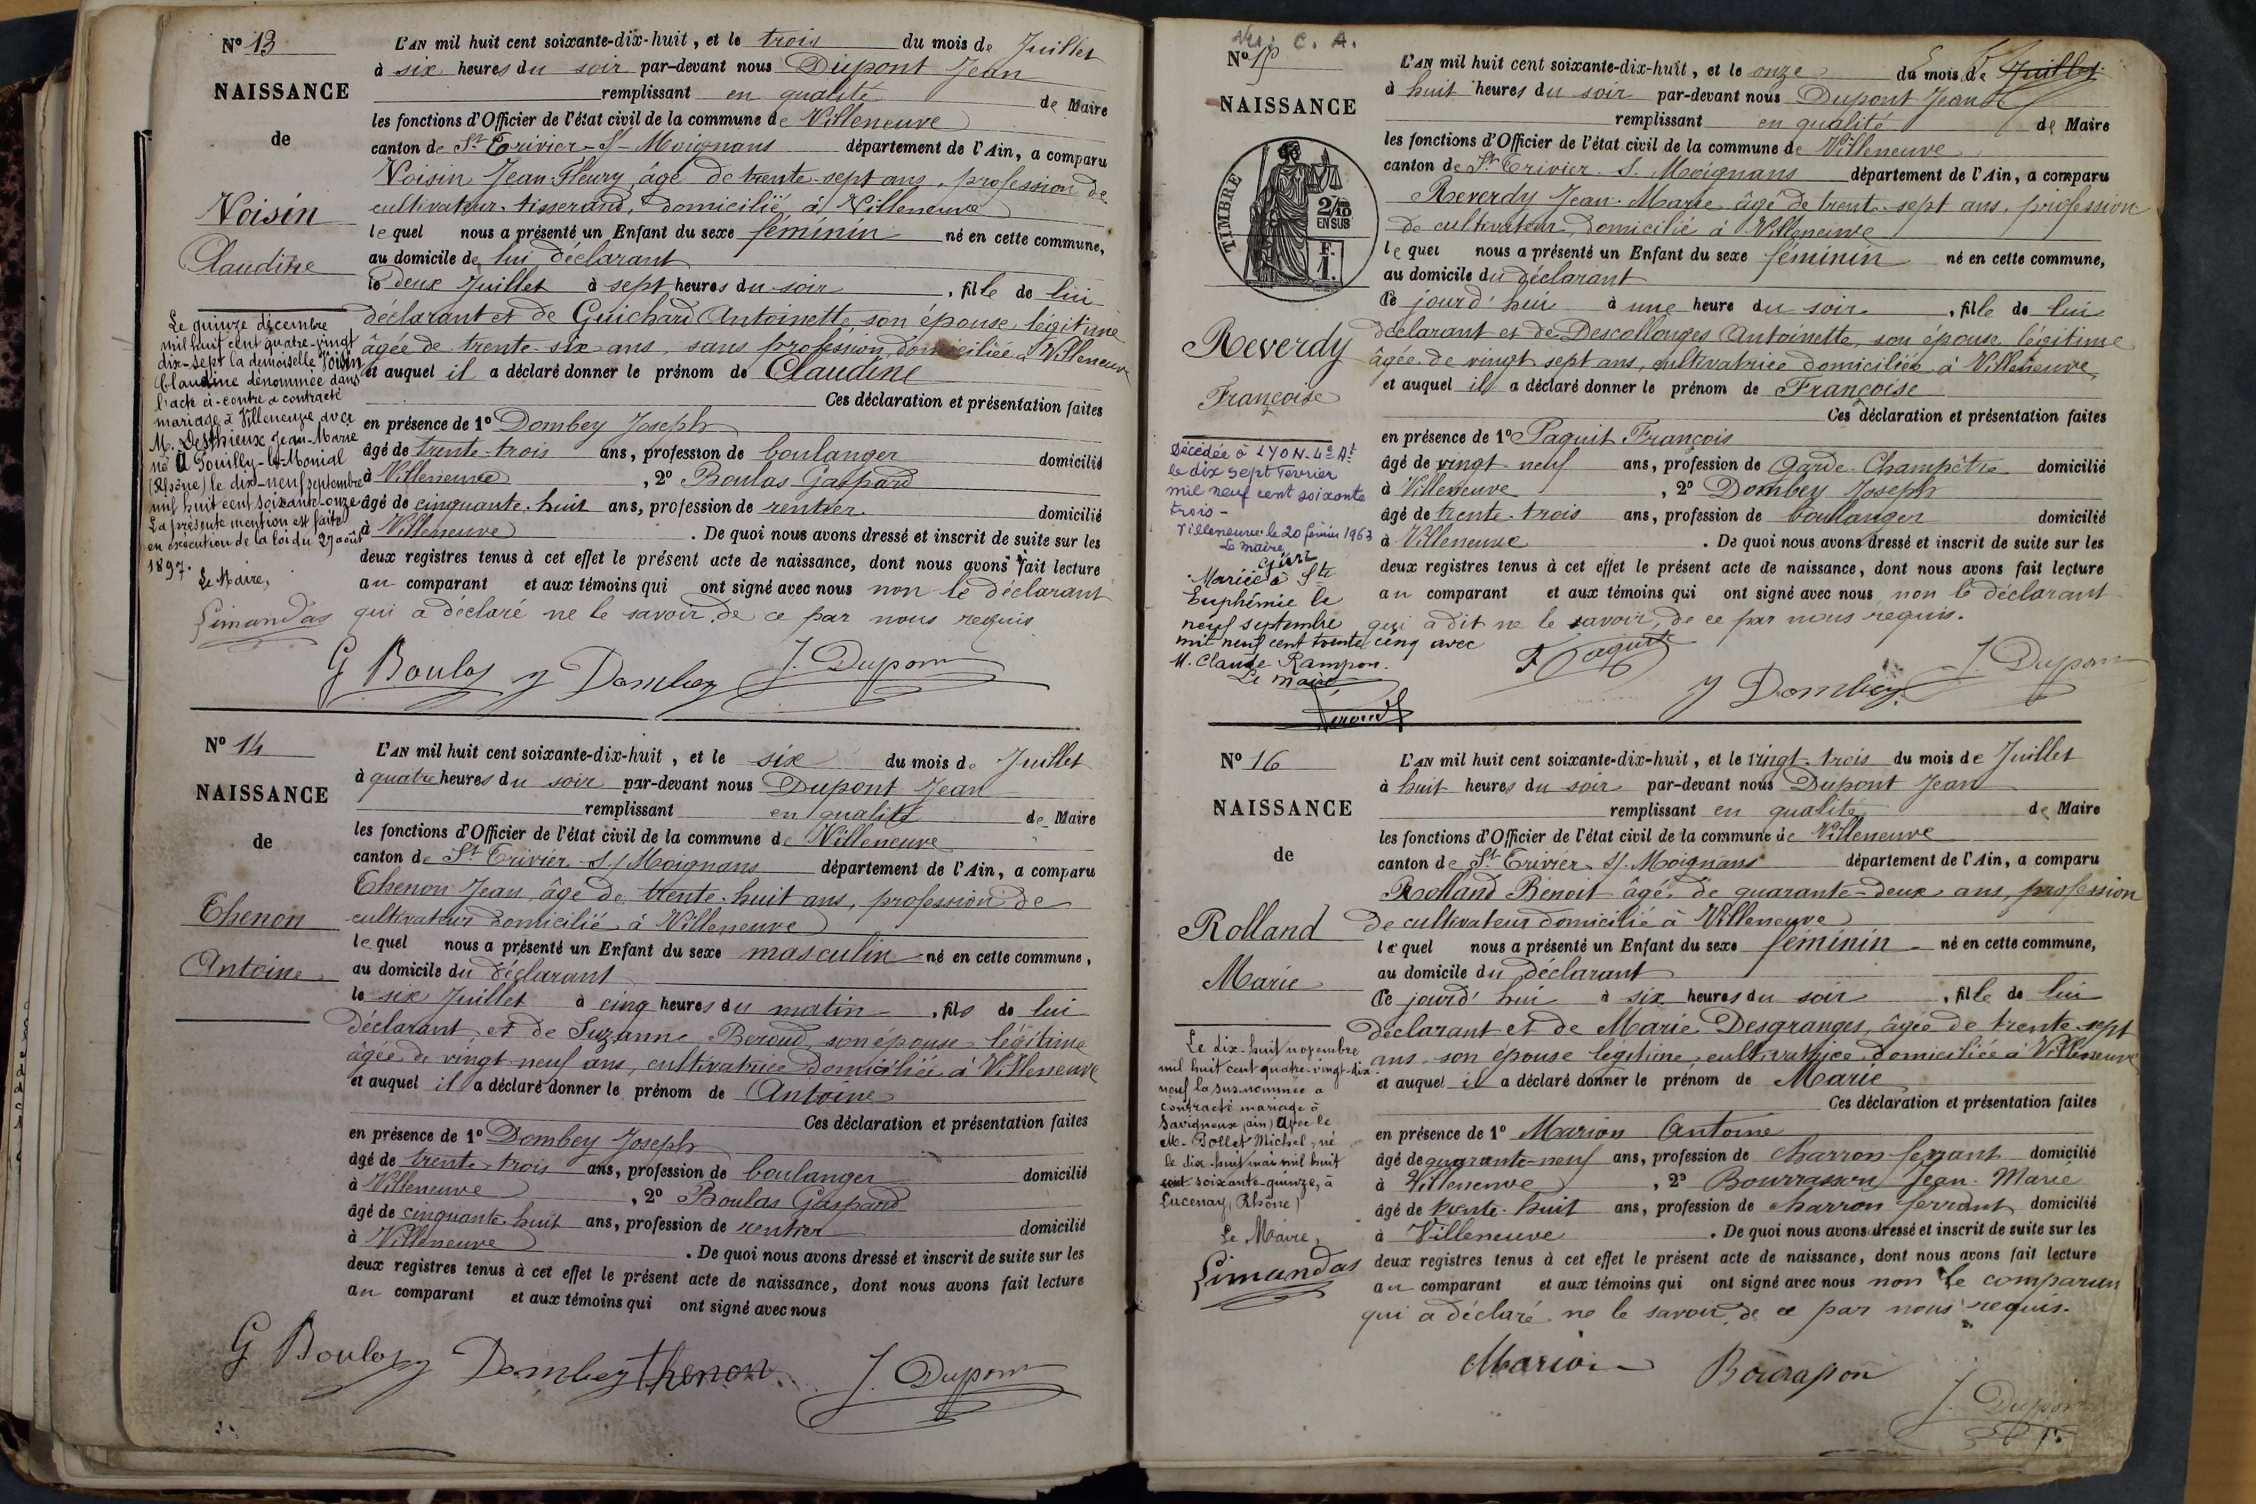 N° 13
NAISSANCE
de
Voisin
Claudine
Le quinze décembre
mil huit cent quatre-vingt
dix-sept la demoiselle Voisin
Claudine dénommée dans
l'acte ci-contre a contracté
mariage à Villeneuve avec
M. Desthieux Jean-Marie
né à Pouilly-le-Monial
(Rhône) le dix-neuf septembre
mil huit cent soixante-onze
La présente mention est faite
en exécution de la loi du 27 août
1897.
Le Maire,
Limandas
L'AN mil huit cent soixante-dix-huit, et le trois du mois de Juillet
à six heures du soir par-devant nous Dupont Jean
remplissant en qualité de Maire
les fonctions d'Officier de l'état civil de la commune de Villeneuve
canton de St Trivier-S/-Moignans département de l'Ain, a comparu
Voisin Jean-Fleury, âgé de trente-sept ans, profession de
cultivateur-tisserand, domicilié à Villeneuve
lequel nous a présenté un Enfant du sexe féminin né en cette commune,
au domicile de lui déclarant
le deux Juillet à sept heures du soir, fille de lui
déclarant et de Guichard Antoinette, son épouse légitime
âgée de trente-six ans, sans profession, domiciliée à Villeneuve
et auquel il a déclaré donner le prénom de Claudine
Ces déclaration et présentation faites
en présence de 1° Dombey Joseph
âgé de trente-trois ans, profession de boulanger domicilié
à Villeneuve, 2° Boulas Gaspard
âgé de cinquante-huit ans, profession de rentier domicilié
à Villeneuve. De quoi nous avons dressé et inscrit de suite sur les
deux registres tenus à cet effet le présent acte de naissance, dont nous avons fait lecture
au comparant et aux témoins qui ont signé avec nous non le déclarant
qui a déclaré ne le savoir, de ce par nous requis
G Boulas J Dombey J. Dupont
N° 14
NAISSANCE
de
Thenon
Antoine
L'AN mil huit cent soixante-dix-huit, et le six du mois de Juillet
à quatre heures du soir par-devant nous Dupont Jean
remplissant en qualité de Maire
les fonctions d'Officier de l'état civil de la commune de Villeneuve
canton de St Trivier-S/Moignans département de l'Ain, a comparu
Thenon Jean, âgé de trente-huit ans, profession de
cultivateur domicilié à Villeneuve
lequel nous a présenté un Enfant du sexe masculin né en cette commune,
au domicile du déclarant
le six Juillet à cinq heures du matin, fils de lui
déclarant et de Suzanne Beroud, son épouse légitime
âgée de vingt-neuf ans, cultivatrice domiciliée à Villeneuve
et auquel il a déclaré donner le prénom de Antoine
Ces déclaration et présentation faites
en présence de 1° Dombey Joseph
âgé de trente-trois ans, profession de boulanger domicilié
à Villeneuve, 2° Boulas Gaspard
âgé de cinquante-huit ans, profession de rentier domicilié
à Villeneuve. De quoi nous avons dressé et inscrit de suite sur les
deux registres tenus à cet effet le présent acte de naissance, dont nous avons fait lecture
au comparant et aux témoins qui ont signé avec nous
G Boulas J Dombey Thenon J. Dupont
C. A.
N° 15
NAISSANCE
TIMBRE
2/10
EN SUS
F.
1.
Reverdy
Françoise
Décédée à LYON-4e At
le dix sept Février
mil neuf cent soixante
trois -
Villeneuve le 20 février 1963
Le maire
Mariée à Ste
Euphémie le
neuf septembre
mil neuf cent trente cinq avec
M. Claude Rampon.
Le Maire,
L'AN mil huit cent soixante-dix-huit, et le onze du mois de Juillet
à huit heures du soir par-devant nous Dupont Jean
remplissant en qualité de Maire
les fonctions d'Officier de l'état civil de la commune de Villeneuve
canton de St Trivier-S. Moignans département de l'Ain, a comparu
Reverdy Jean-Marie âgé de trente-sept ans, profession
de cultivateur, domicilié à Villeneuve
lequel nous a présenté un Enfant du sexe féminin né en cette commune,
au domicile du déclarant
ce jourd'hui à une heure du soir, fille de lui
déclarant et de Descollonges Antoinette, son épouse légitime
âgée de vingt sept ans, cultivatrice domiciliée à Villeneuve
et auquel il a déclaré donner le prénom de Françoise
Ces déclaration et présentation faites
en présence de 1° Paquit François
âgé de vingt-neuf ans, profession de Garde-Champêtre domicilié
à Villeneuve, 2° Dombey Joseph
âgé de trente-trois ans, profession de boulanger domicilié
à Villeneuve. De quoi nous avons dressé et inscrit de suite sur les
deux registres tenus à cet effet le présent acte de naissance, dont nous avons fait lecture
au comparant et aux témoins qui ont signé avec nous non le déclarant
qui a dit ne le savoir, de ce par nous requis.
F Paquit J Dombey J. Dupont
N° 16
NAISSANCE
de
Rolland
Marie
Le dix-huit novembre
mil huit cent quatre-vingt-dix-
neuf la susnommée a
contracté mariage à
Savigneux (Ain) avec le
M. Bollet Michel, né
le dix-huit mai mil huit
cent soixante-quinze, à
Lucenay (Rhône)
Le Maire,
Limandas
L'AN mil huit cent soixante-dix-huit, et le vingt-trois du mois de Juillet
à huit heures du soir par-devant nous Dupont Jean
remplissant en qualité de Maire
les fonctions d'Officier de l'état civil de la commune de Villeneuve
canton de St Trivier-S/-Moignans département de l'Ain, a comparu
Rolland Benoit âgé de quarante-deux ans, profession
de cultivateur domicilié à Villeneuve
lequel nous a présenté un Enfant du sexe féminin né en cette commune,
au domicile du déclarant
ce jourd'hui à six heures du soir, fille de lui
déclarant et de Marie Desgranges, âgée de trente-sept
ans, son épouse légitime, cultivatrice domiciliée à Villeneuve
et auquel il a déclaré donner le prénom de Marie
Ces déclaration et présentation faites
en présence de 1° Marion Antoine
âgé de quarante-neuf ans, profession de charron-ferrant domicilié
à Villeneuve, 2° Bourrasson Jean-Marie
âgé de trente-huit ans, profession de charron ferrant domicilié
à Villeneuve. De quoi nous avons dressé et inscrit de suite sur les
deux registres tenus à cet effet le présent acte de naissance, dont nous avons fait lecture
au comparant et aux témoins qui ont signé avec nous non le comparan
qui a déclaré ne le savoir, de ce par nous requis.
Marion Bourapon J. Dupont